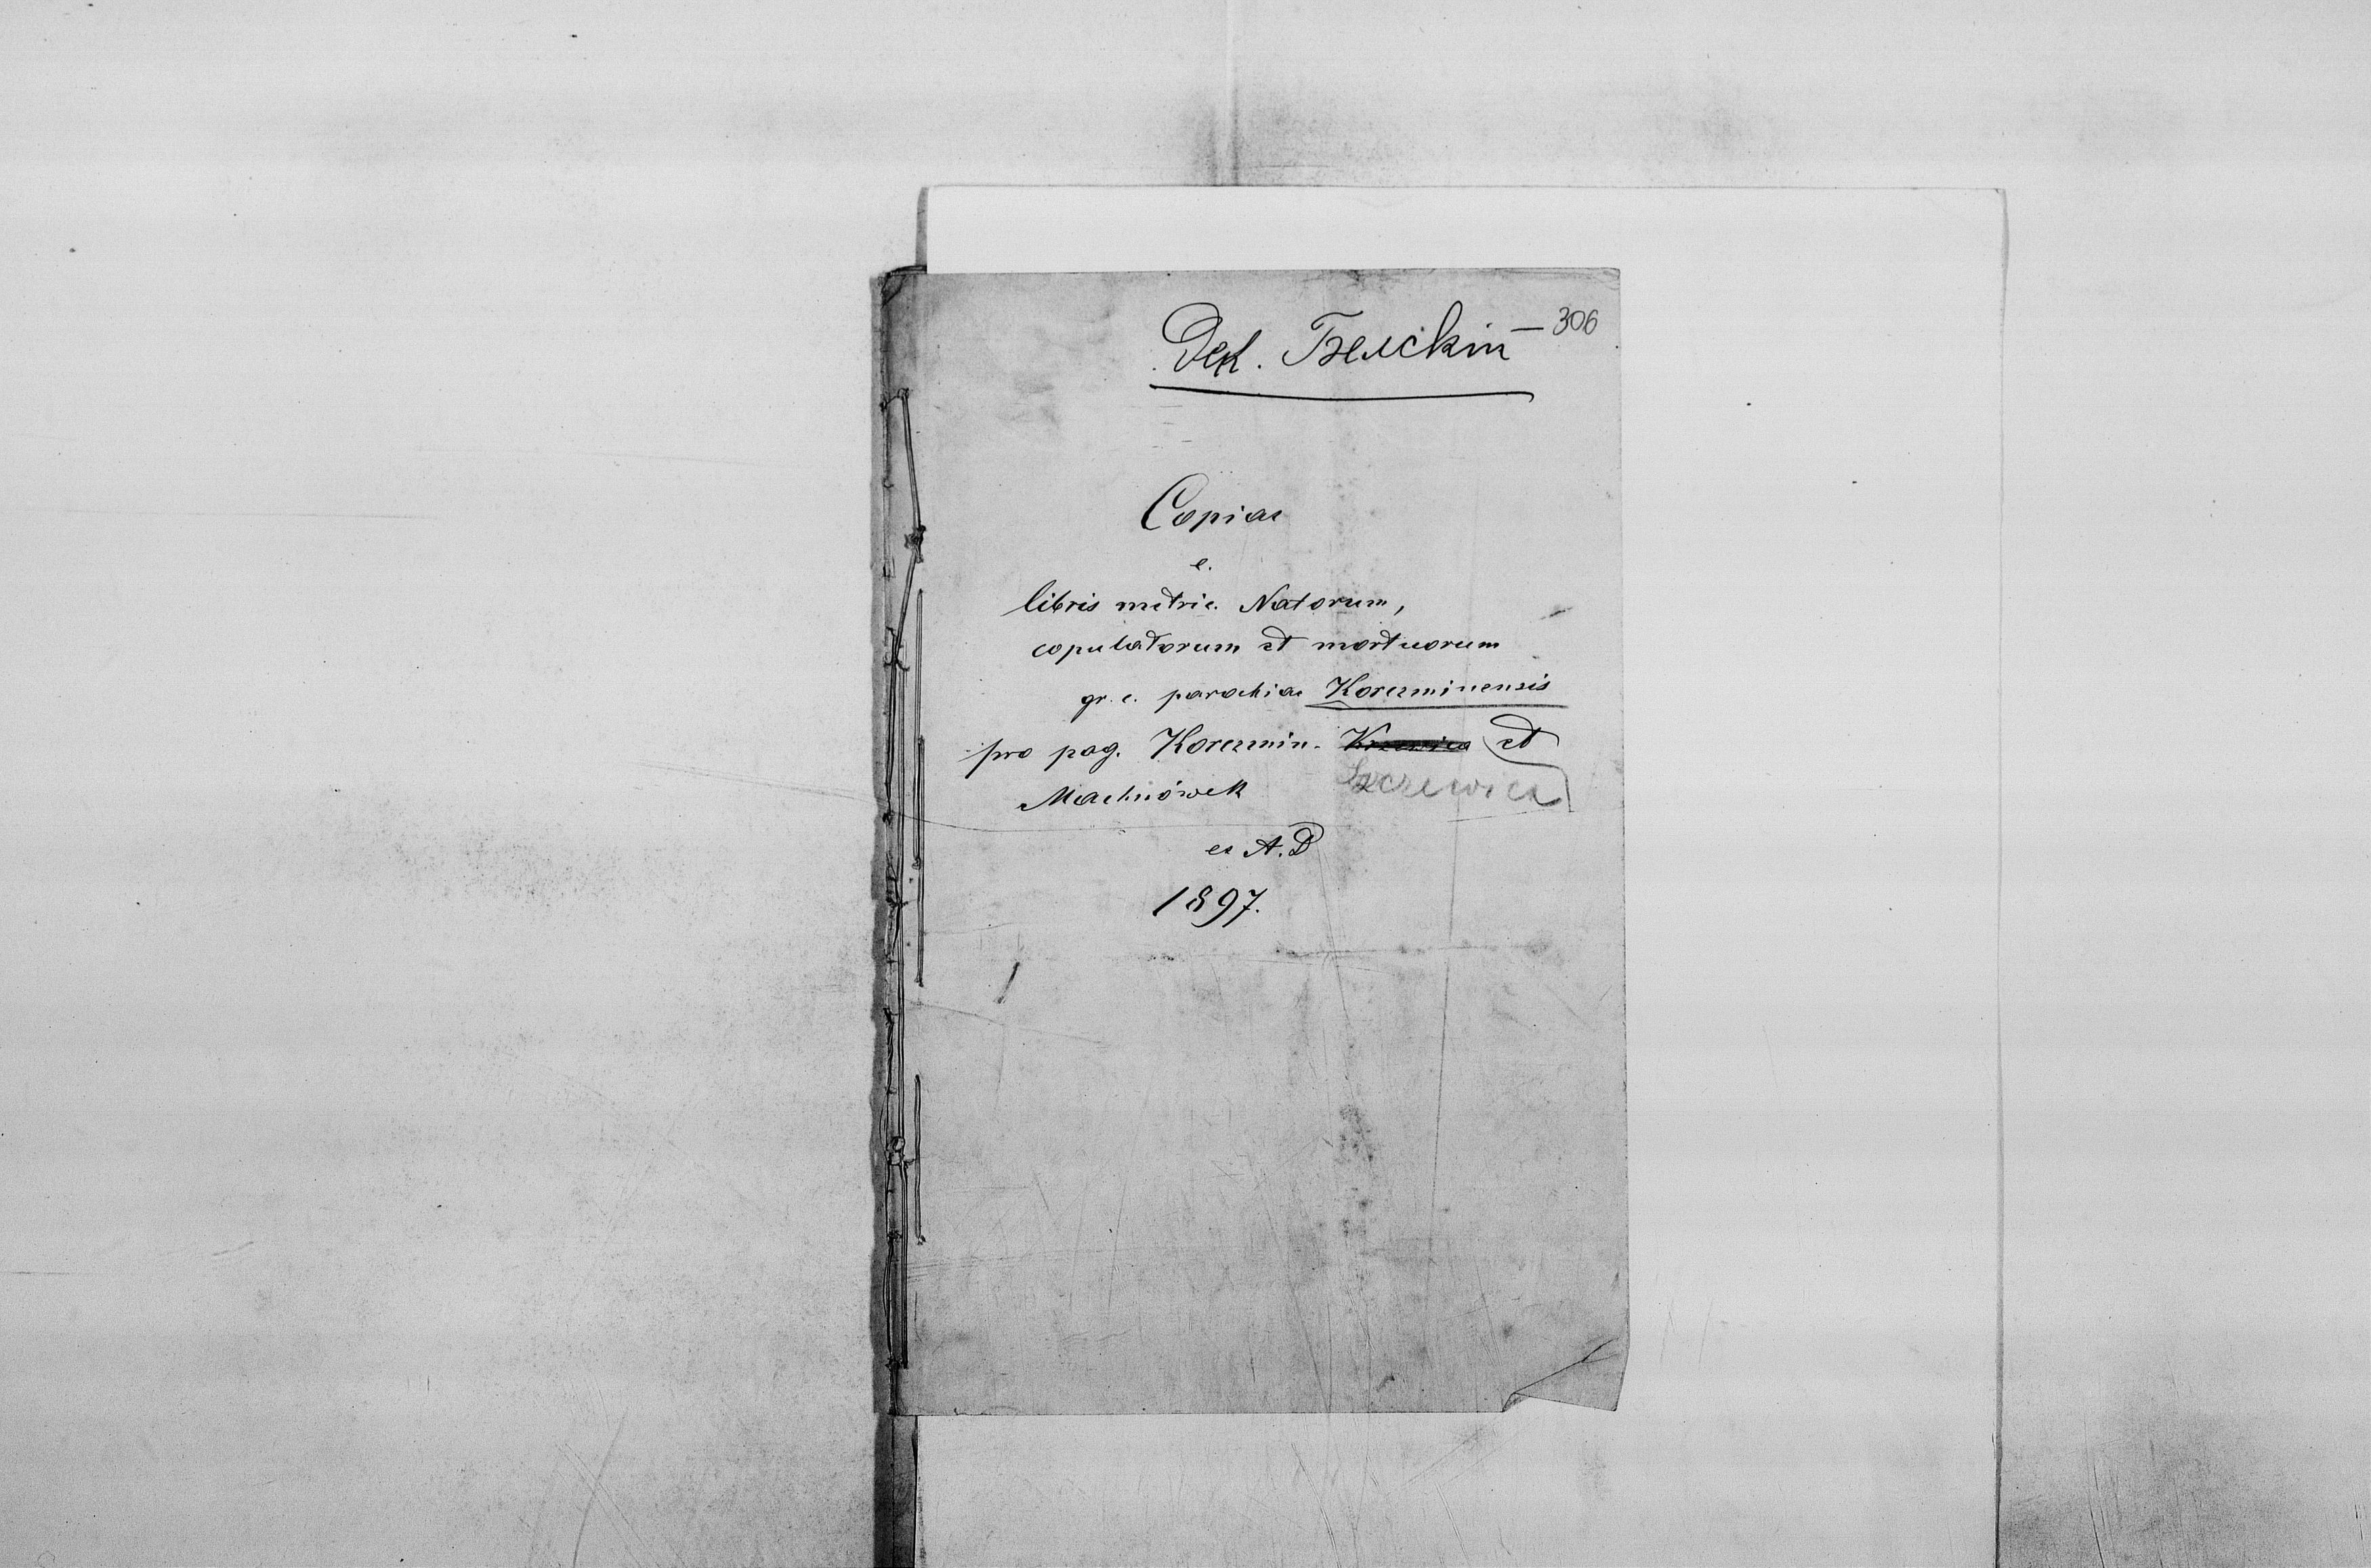 306
Дек. Белскій
Copiae
e.
libris metric. Natorum,
copulatorum et mortuorum
gr. c. parochiae Korczminensis
pro pag. Korczmin. Krzewica et
Szczewica
Machnówek
ex A. D
1897.